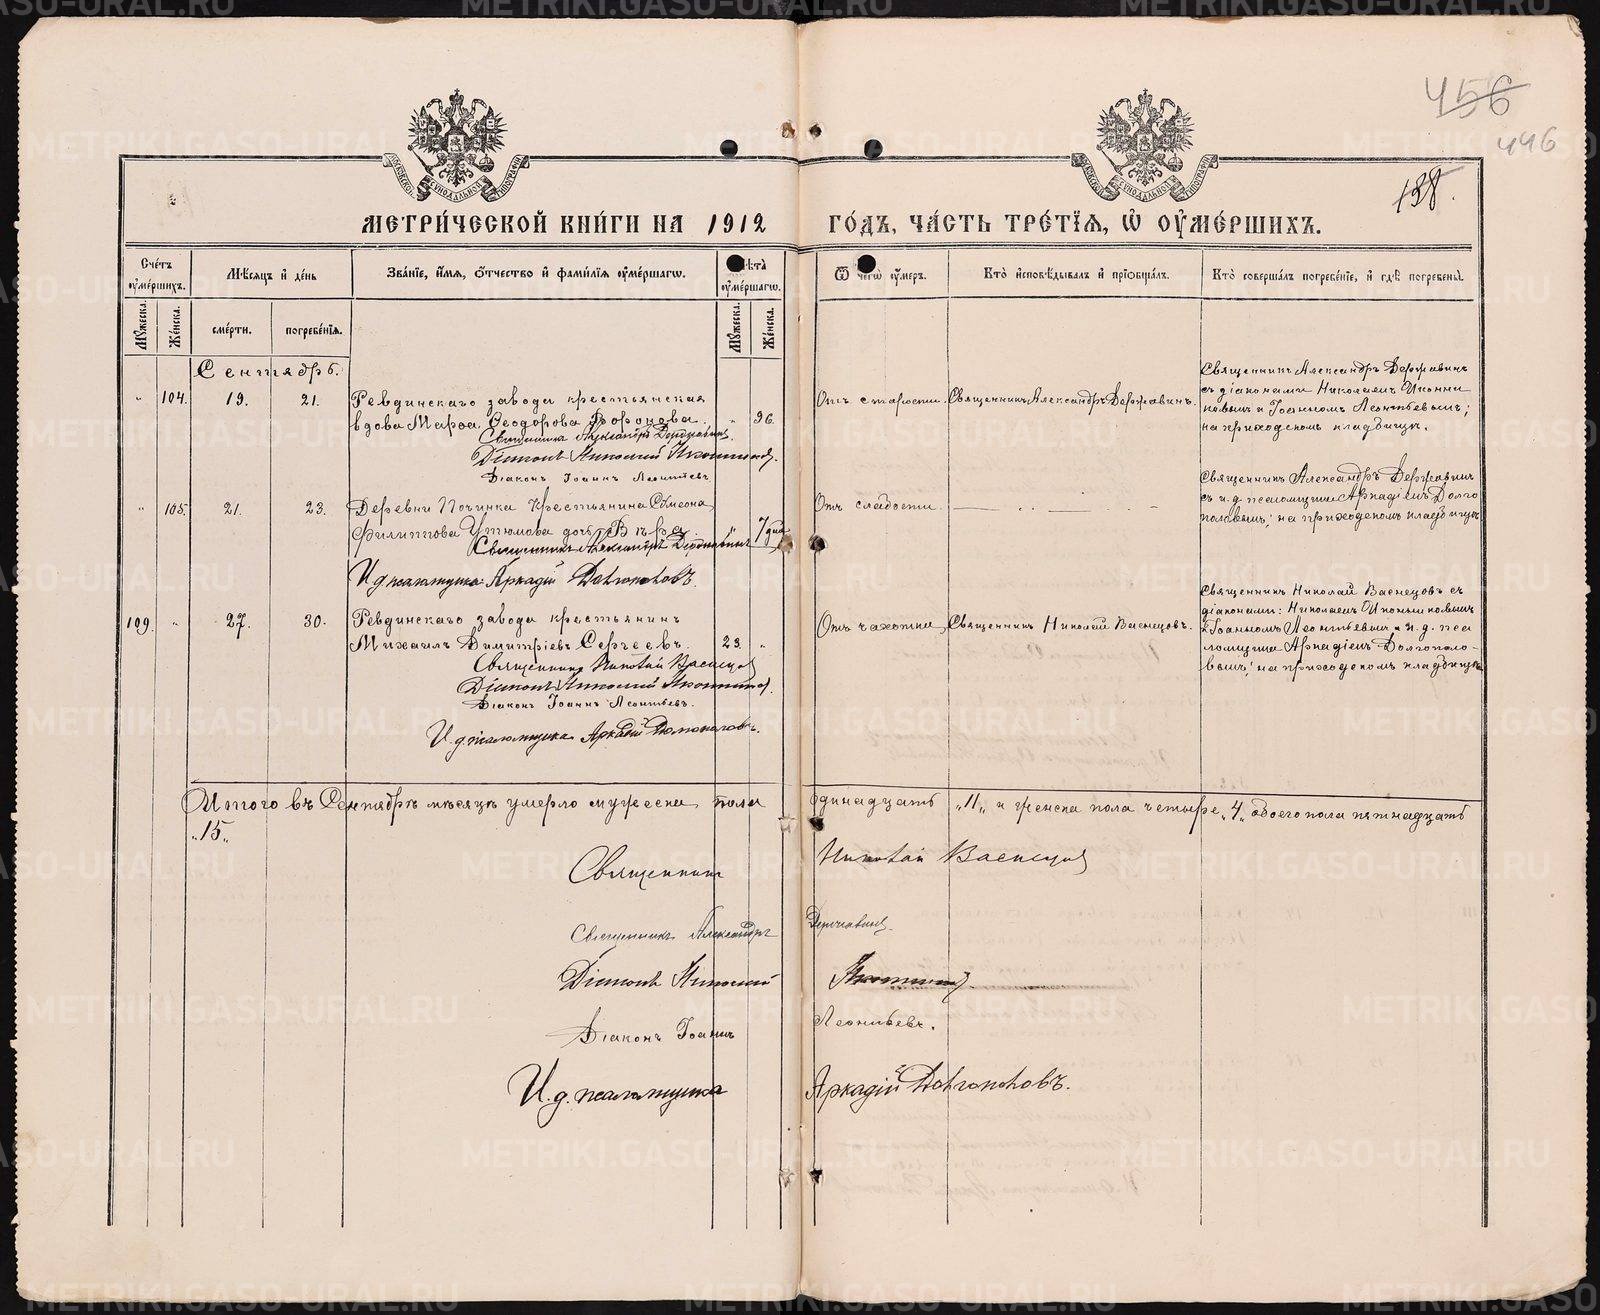 456
446
138.
МЕТРИ́ЧЕСКОЙ КНИ́ГИ НА 1912 ГО́ДЪ, ЧА́СТЬ ТРЕ́ТІѦ, Ѿ ОУ҆МЕ́РШИХЪ.
Сче́тъ оу҆ме́ршихъ.
Мѣ́сяцъ и҆ де́нь
Зва́нїе, и҆́мя, ѻ҆́тчество и҆ фами́лїя оу҆ме́ршагѡ.
оу҆ме́ршагѡ.
Ѿ чегѡ̀ оу҆́меръ.
Кто̀ и҆сповѣ́дывалъ и҆ прїѻбща́лъ.
Кто̀ соверша́лъ погребе́нїе, и҆ гдѣ̀ погребены̀.
Мꙋ́жеска.
Же́нска.
сме́рти.
погребе́нїя.
Мꙋ́жеска.
Же́нска.
Сентябрь.
" 104. 19. 21. Ревдинскаго завода крестьянская
вдова Марѳа Ѳеодорова Воронова. " 96.
Священникъ Александръ Державинъ.
Діаконъ Николай Иконниковъ.
Діаконъ Іоаннъ Леонтьевъ.
Отъ старости. Священникъ Александръ Державинъ.
Священникъ Александръ Державинъ
съ діаконами Николаемъ Иконни
ковымъ и Іоанномъ Леонтьевымъ;
на приходскомъ кладбищѣ.
" 105. 21. 23. Деревни Починка крестьянина Симеона
Филиппова Утюмова дочь Вѣра " 7 дня
Священникъ Александръ Державинъ
И. д. псаломщика Аркадій Долгополовъ.
Отъ слабости.
Священникъ Александръ Державинъ
съ и. д. псаломщика Аркадіемъ Долго
половымъ; на приходскомъ кладбищѣ
109. " 27. 30. Ревдинскаго завода крестьянинъ
Михаилъ Димитріевъ Сергеевъ. 23. "
Священникъ Николай Васнецов
Діаконъ Николай Иконников.
Діаконъ Іоаннъ Леонтьевъ.
И. д. псаломщика Аркадій Долгополовъ.
Отъ чахотки. Священникъ Николай Васнецовъ.
Священникъ Николай Васнецовъ съ
діаконами: Николаемъ Иконниковымъ
и Іоанномъ Леонтьевымъ и и. д. пса
ломщика Аркадіемъ Долгополо-
вымъ; на приходскомъ кладбищѣ
Итого въ Сентябрѣ мѣсяцѣ умерло мужеска пола одинадцать „11„ и женска пола четыре „4„ обоего пола пятнадцать
„15„
Священникъ Николай Васнецов
Священникъ Александръ Державинъ.
Діаконъ Николай Иконников.
Діаконъ Іоаннъ Леонтьевъ.
И. д. псаломщика Аркадій Долгополовъ.
METRIKI.GASO-URAL.RU